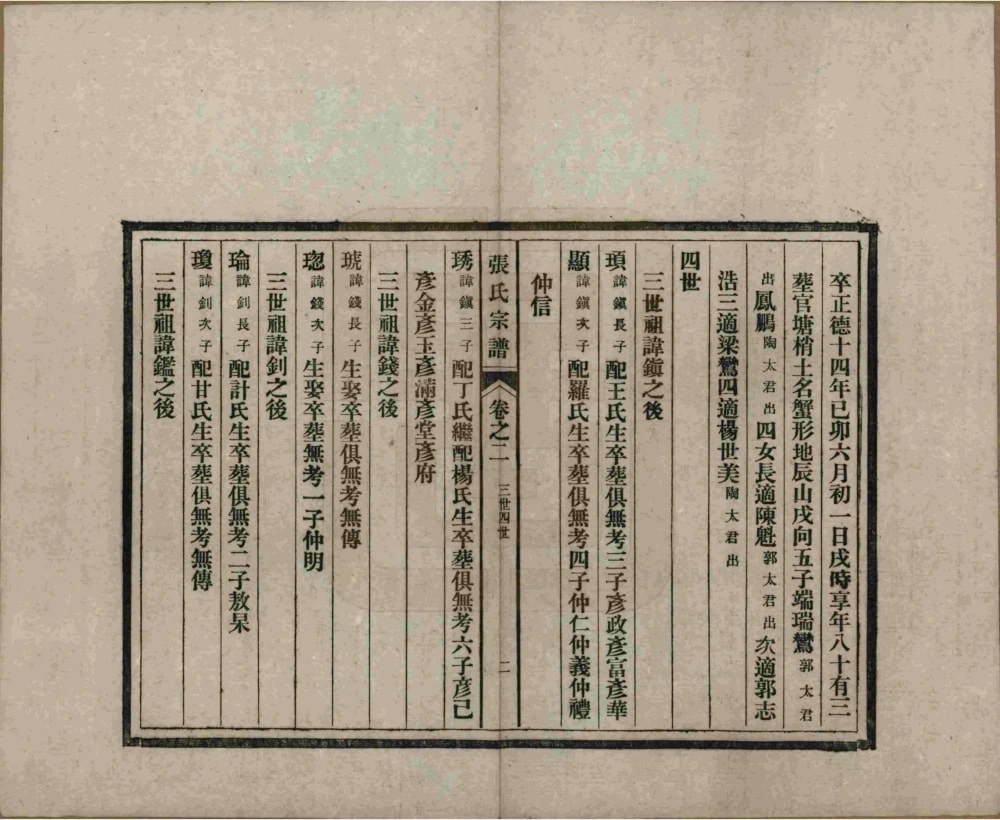 卒正德十四年己卯六月初一日戌時享年八十有三
塟官塘梢土名蟹形地辰山戌向五子端瑞鸞郭太君
出鳳鵬陶太君出四女長適陳魁郭太君出次適郭志
浩三適梁鸞四適楊世美陶太君出
四世
三世祖諱鎭之後
頊諱鎭長子配王氏生卒塟俱無考三子彥政彥富彥華
顯諱鎭次子配羅氏生卒塟俱無考四子仲仁仲義仲禮
仲信
張氏宗譜 卷之二 三世四世 二
琇諱鎭三子配丁氏繼配楊氏生卒塟俱無考六子彥己
彥金彥玉彥滿彥堂彥府
三世祖諱錢之後
琥諱錢長子生娶卒塟俱無考無傳
璁諱錢次子生娶卒塟無考一子仲明
三世祖諱釗之後
瑜諱釗長子配計氏生卒塟俱無考二子敖杲
瓊諱釗次子配甘氏生卒塟俱無考無傳
三世祖諱鑑之後